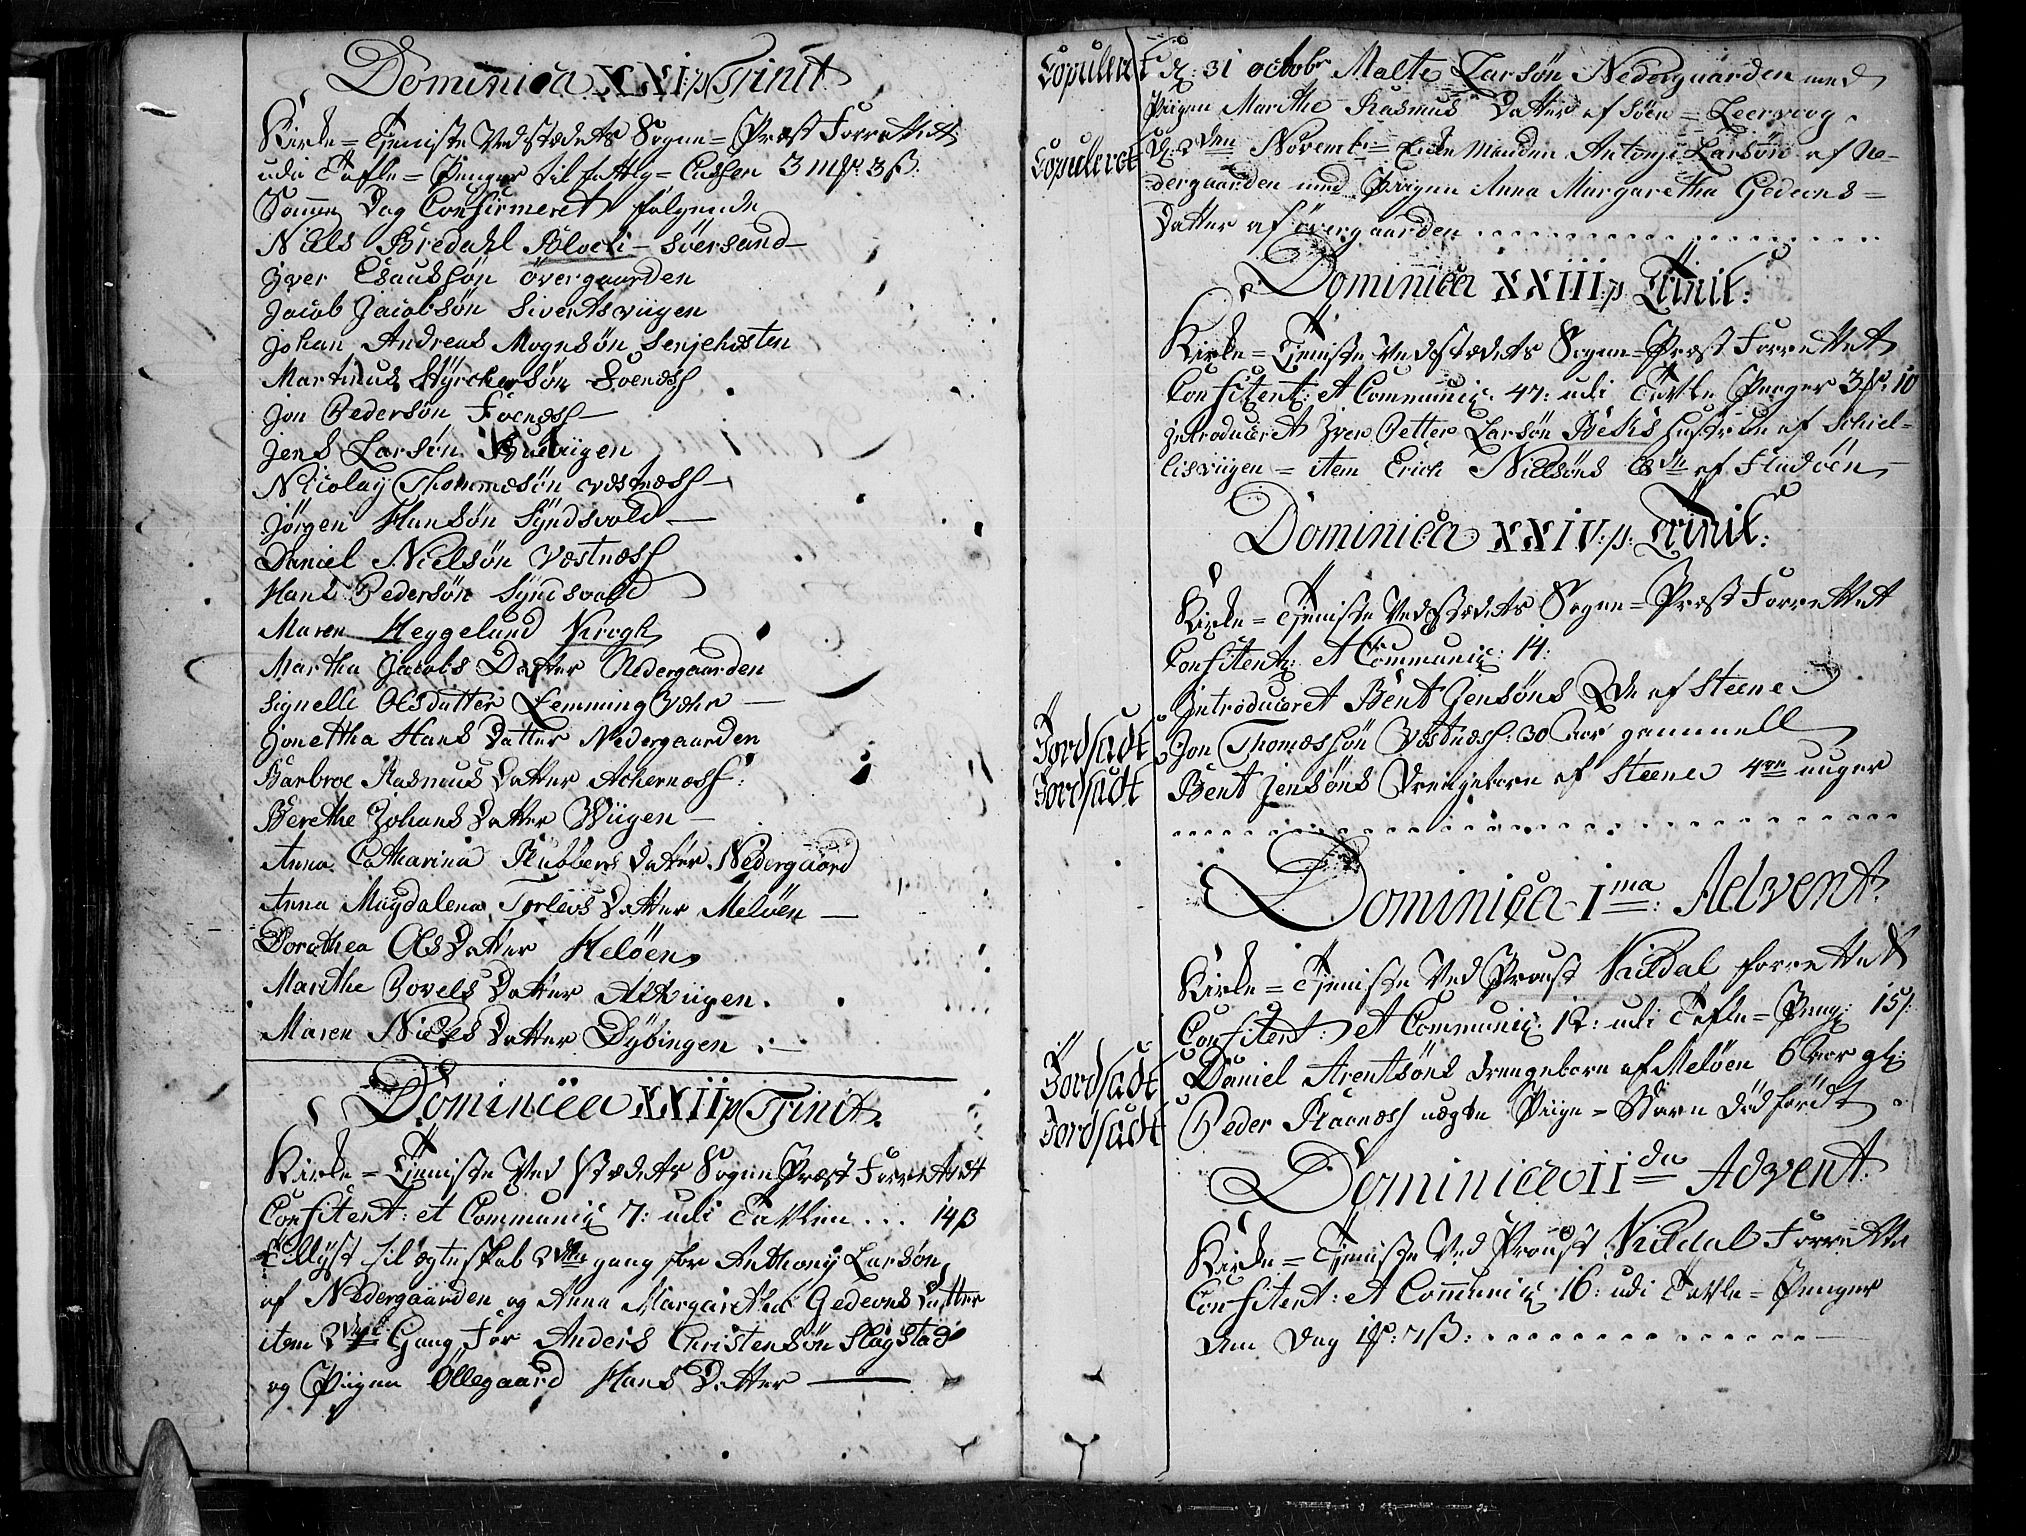 Dominica XXI p Trinit
Kirke = Tieniste Ved stædets Sogne = Præst Forrettet
udi Tafle = Penger til fattig = Cassen 3 mk 3 ß.
Samme Dag Confirmeret følgende
Niels Bredahl Bloch - Söersand -
Iver Esausøn övergaarden
Jacob Jacobsøn Sivertsviigen
Johan Andreas Mognsøn Senjehæsten
Martinus Styrchersøn
Jon Pedersøn
Jens Larsøn
Nicolay Thommesøn Vestnæss -
Jörgen Hansøn Syndsvold -
Daniel Nielsøn Væstnæss
Hans Pedersøn Syndsvold
Maren Heggelund Krogh
Martha Jacobs Datter Nedergaarden
Signelle Olsdatter Lemming Vær -
Jonetha Hans Datter Nedergaarden
Barbroe Rasmus Datter Achernæss:
Berethe Johans Datter Wiigen -
Anna Catharina Klubbens Datter Nedergaard
Anna Magdalena Torlevs Datter Meløen -
Dorothea Ols Datter Meløen
Marithe Povels Datter
Maren Niels Datter Dybingen . -
Dominica XXII p Trinit.
Kirke = Tieniste Ved stædets Sogne Præst Forrettet
Confitent: et Communic 7: udi Tavlen ... 14 ß
Tillyst til ægteskab gang for Anthonj Larsøn
af Nedergaarden og Anna Margaretha Gedeons Datter
item Gang for Anders Christensøn Slagstad
og Piigen Öllegaard Hans Datter -
Copuleret d: 31 octobr Malte Larsøn Nedergaarden med
Piigen Marithe Rasmus Datter af Søer = Leervog.
Copuleret Novemb: Enke Manden Antonj Larsøn af Ne-
dergaarden med Piigen Anna Margaretha Gedeons =
Datter af övergaarden
Dominica XXIII p. Trinit:
Kirke = Tieniste Ved stædets Sogne = Præst Forrettet
Confitent: et Communic: 47: udi Tavle Penger
Introduceret Iver Petter Larsøn Becks Hustrue af Schiel-
lisviigen = item Erich Nielsøns af Findøen -
Dominica XXIV: p: Trinit:
Kirke = Tieniste Ved stædets Sogne = Præst Forrettet
Confitent: et Communic: 14:
Introduceret Bent Jensøns Qde af Steene
Jordsadt Jon Thomessøn Vestnæss: 30 Aar gammell
Jordsadt Bent Jensøns Drengebarn af Steene 4 uger
Dominica 1ma: Advent.
Kirke = Tieniste Ved Proust Kildal forrettet
Confitent: et Communic: 12: udi Tafle = Peng: 15 ß.
Jordsadt Daniel Arentsøns Drengebarn af Meløen 6 Aar gl:
Jordsadt Peder ægte Piige = Barn död födt.
Dominica II da Advent.
Kirke = Tieniste Ved Proust Kildal Forrettet
Confitent: et Communic 16: udi Tavle = Penger
Dag 7 ß: